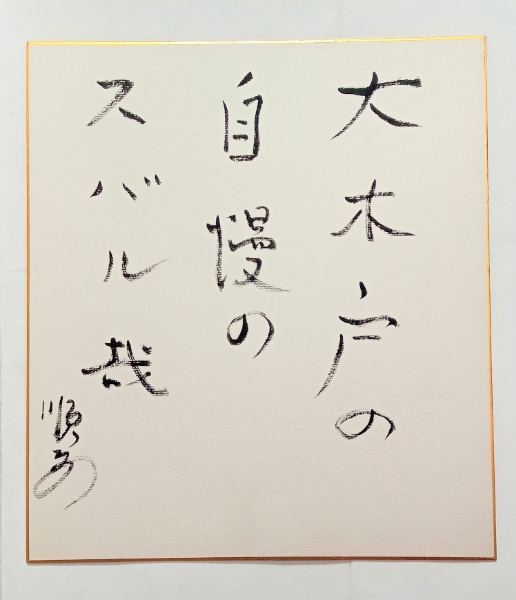 大木戸の
自慢の
スバル哉
順